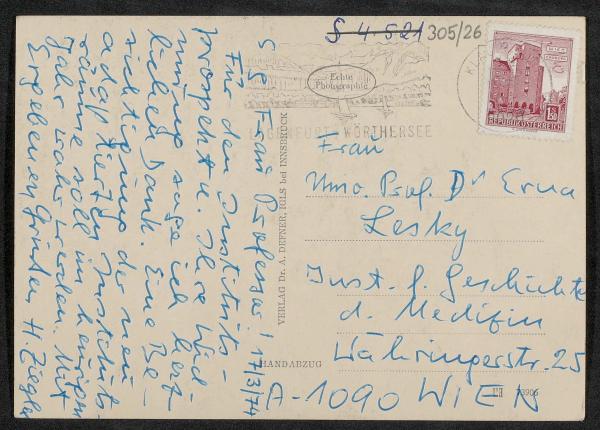 S 4.521 305/26
Echte
Photographie
KLAGENFURT WÖRTHERSEE
REPUBLIK ÖSTERREICH
1.50
S.g. Frau Professor! 17/3/74
Für den Instituts-
prospekt u. Ihre Wid-
mung sage ich herz-
lichen Dank. Eine Be-
sichtigung der neu
adaptierten Instituts-
räume soll im heurigen
Jahr wahr werden. Mit
Ergebenen Grüßen H. Ziegler
VERLAG Dr. A. DEFNER, IGLS bei INNSBRUCK
HANDABZUG
Frau
Univ. Prof. Dr Erna
Lesky
Inst. f. Geschichte
d. Medizin
Währingerstr. 25
A-1090 WIEN
73906